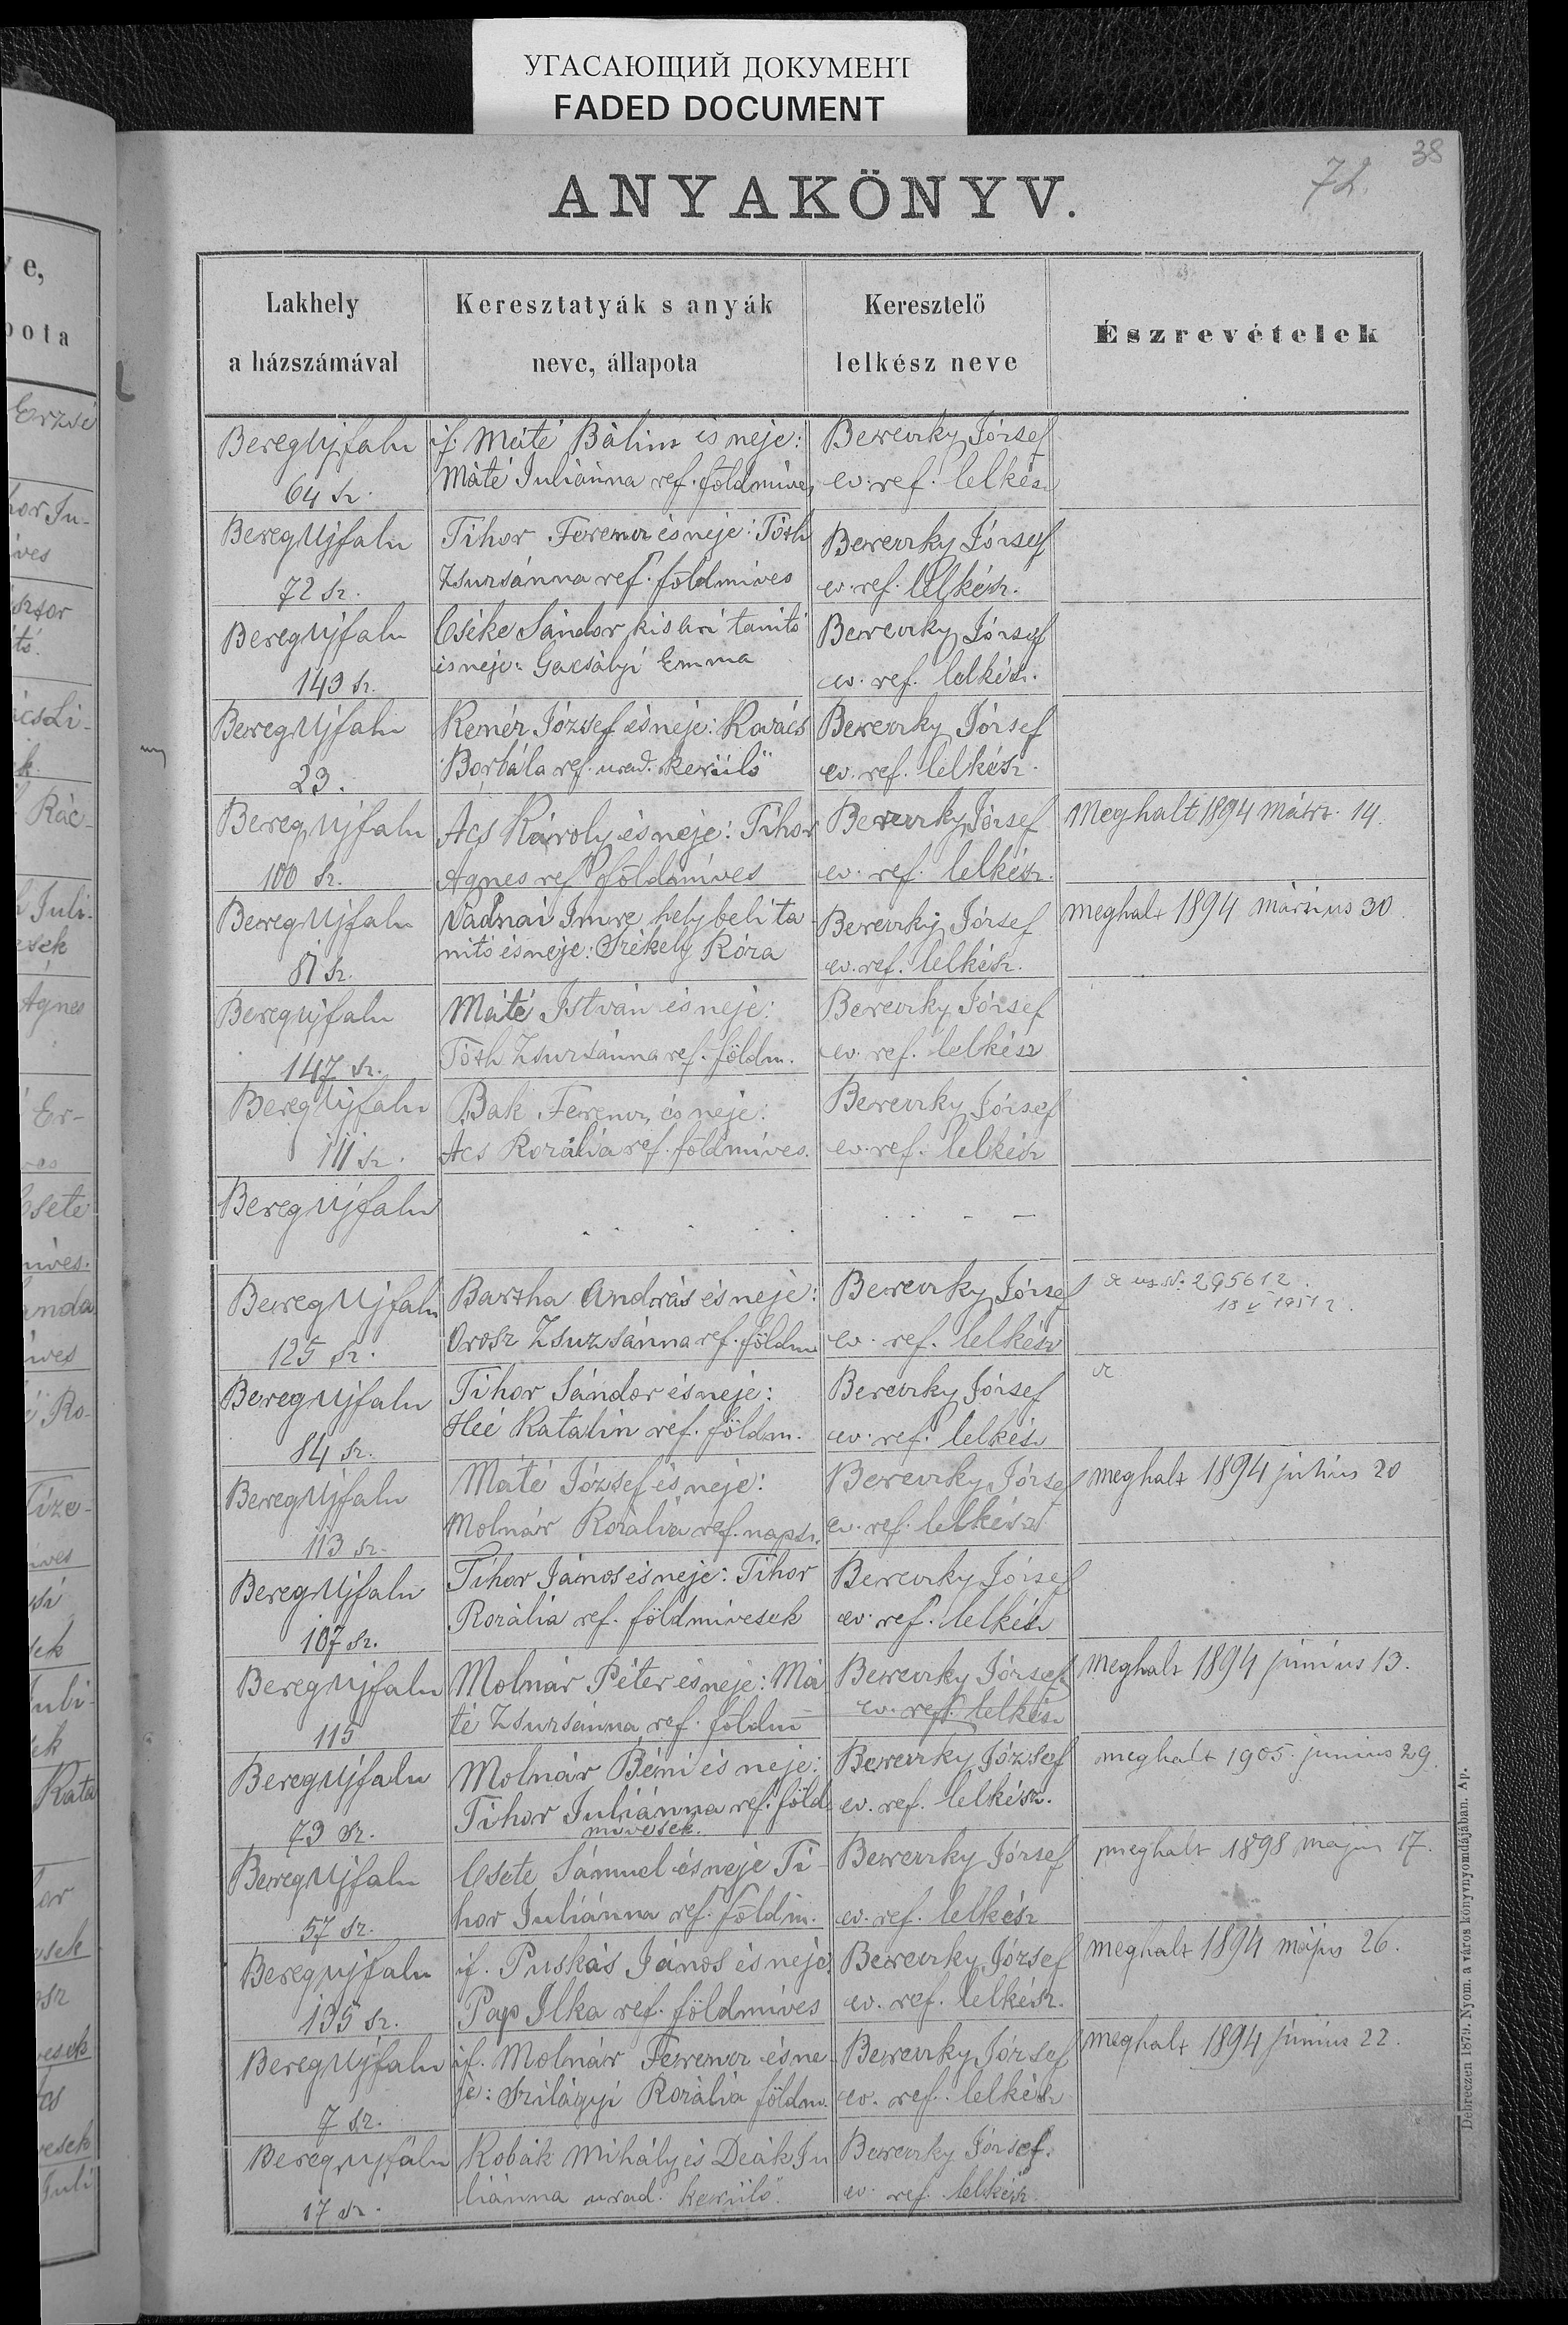 УГАСАЮЩИЙ ДОКУМЕНТ
FADED DOCUMENT
38
72.
ANYAKÖNYV.
Lakhely
a házszámával
Keresztatyák s anyák
neve, állapota
Keresztelő
lelkész neve
Észrevételek
BeregUjfalu
64 sz.
if. Máté Bálint és neje:
Máté Juliánna ref. földmíves
Bereczky József
ev. ref. lelkész
BeregUjfalu
72 sz.
Tihor Ferencz és neje: Tóth
Zsuzsánna ref. földmíves
Bereczky József
ev. ref. lelkész.
BeregUjfalu
143 sz.
Cseke Sándor kisari tanitó
és neje: Gacsályi Emma
Bereczky József
ev. ref. lelkész.
BeregUjfalu
23.
József és neje: Kovács
Borbála ref. urad. kerülő
Bereczky József
ev. ref. lelkész.
BeregUjfalu
100 sz.
Ács Károly és neje: Tihor
Ágnes ref földmíves
Bereczky József
ev. ref. lelkész.
Meghalt 1894 márcz. 14.
BeregUjfalu
sz.
Vadnai Imre helybeli ta
nitó és neje: Székely Róza
Bereczky József
ev. ref. lelkész.
meghalt 1894 márczius 30.
BeregUjfalu
147 sz.
Máté István és neje:
Tóth Zsuzsánna ref. földm.
Bereczky József
ev. ref. lelkész
BeregUjfalu
111 sz.
Bak Ferencz és neje:
Ács Rozália ref. földmíves.
Bereczky József
ev. ref. lelkész
BeregUjfalu
BeregUjfalu
125 sz.
Bartha András és neje:
Orosz Zsuzsánna ref. földm
Bereczky József
ev. ref. lelkész
295612.
BeregUjfalu
84 sz.
Tihor Sándor és neje:
Heé Katalin ref. földm.
Bereczky József
ev. ref. lelkész
BeregUjfalu
113 sz.
Máté József és neje:
Molnár Rozália ref. napsz.
Bereczky József
ev. ref. lelkész
meghalt 1894 julius 20
BeregUjfalu
107 sz.
Tihor János és neje: Tihor
Rozália ref. földmívesek
Bereczky József
ev. ref. lelkész
BeregUjfalu
115
Molnár Péter és neje: Má
té Zsuzsánna ref. földm
Bereczky József
ev. ref. lelkész
meghalt 1894 junius 13.
BeregUjfalu
73 sz.
Molnár Béni és neje:
Tihor Juliánna ref. föld
mívesek.
Bereczky József
ev. ref. lelkész.
meghalt 1905. junius 29.
BeregUjfalu
57 sz.
Csete Sámuel és neje Ti-
hor Juliánna ref. földm.
Bereczky József
ev. ref. lelkész
meghalt 1898 május 17.
BeregUjfalu
135 sz.
if. Puskás János és neje:
Pap Ilka ref. földmíves
Bereczky József
ev. ref. lelkész.
meghalt 1894 május 26.
BeregUjfalu
7 sz.
if. Molnár Ferencz és ne-
je: Szilágyi Rozália földm.
Bereczky József
ev. ref. lelkész
meghalt 1894 junius 22.
BeregUjfalu
17 sz.
Kobák Mihály és Deák Ju
liánna urad. kerülő.
Bereczky József.
ev. ref. lelkész.
Debreczen 1879. Nyom. a város könyvnyomdájában. Ap.